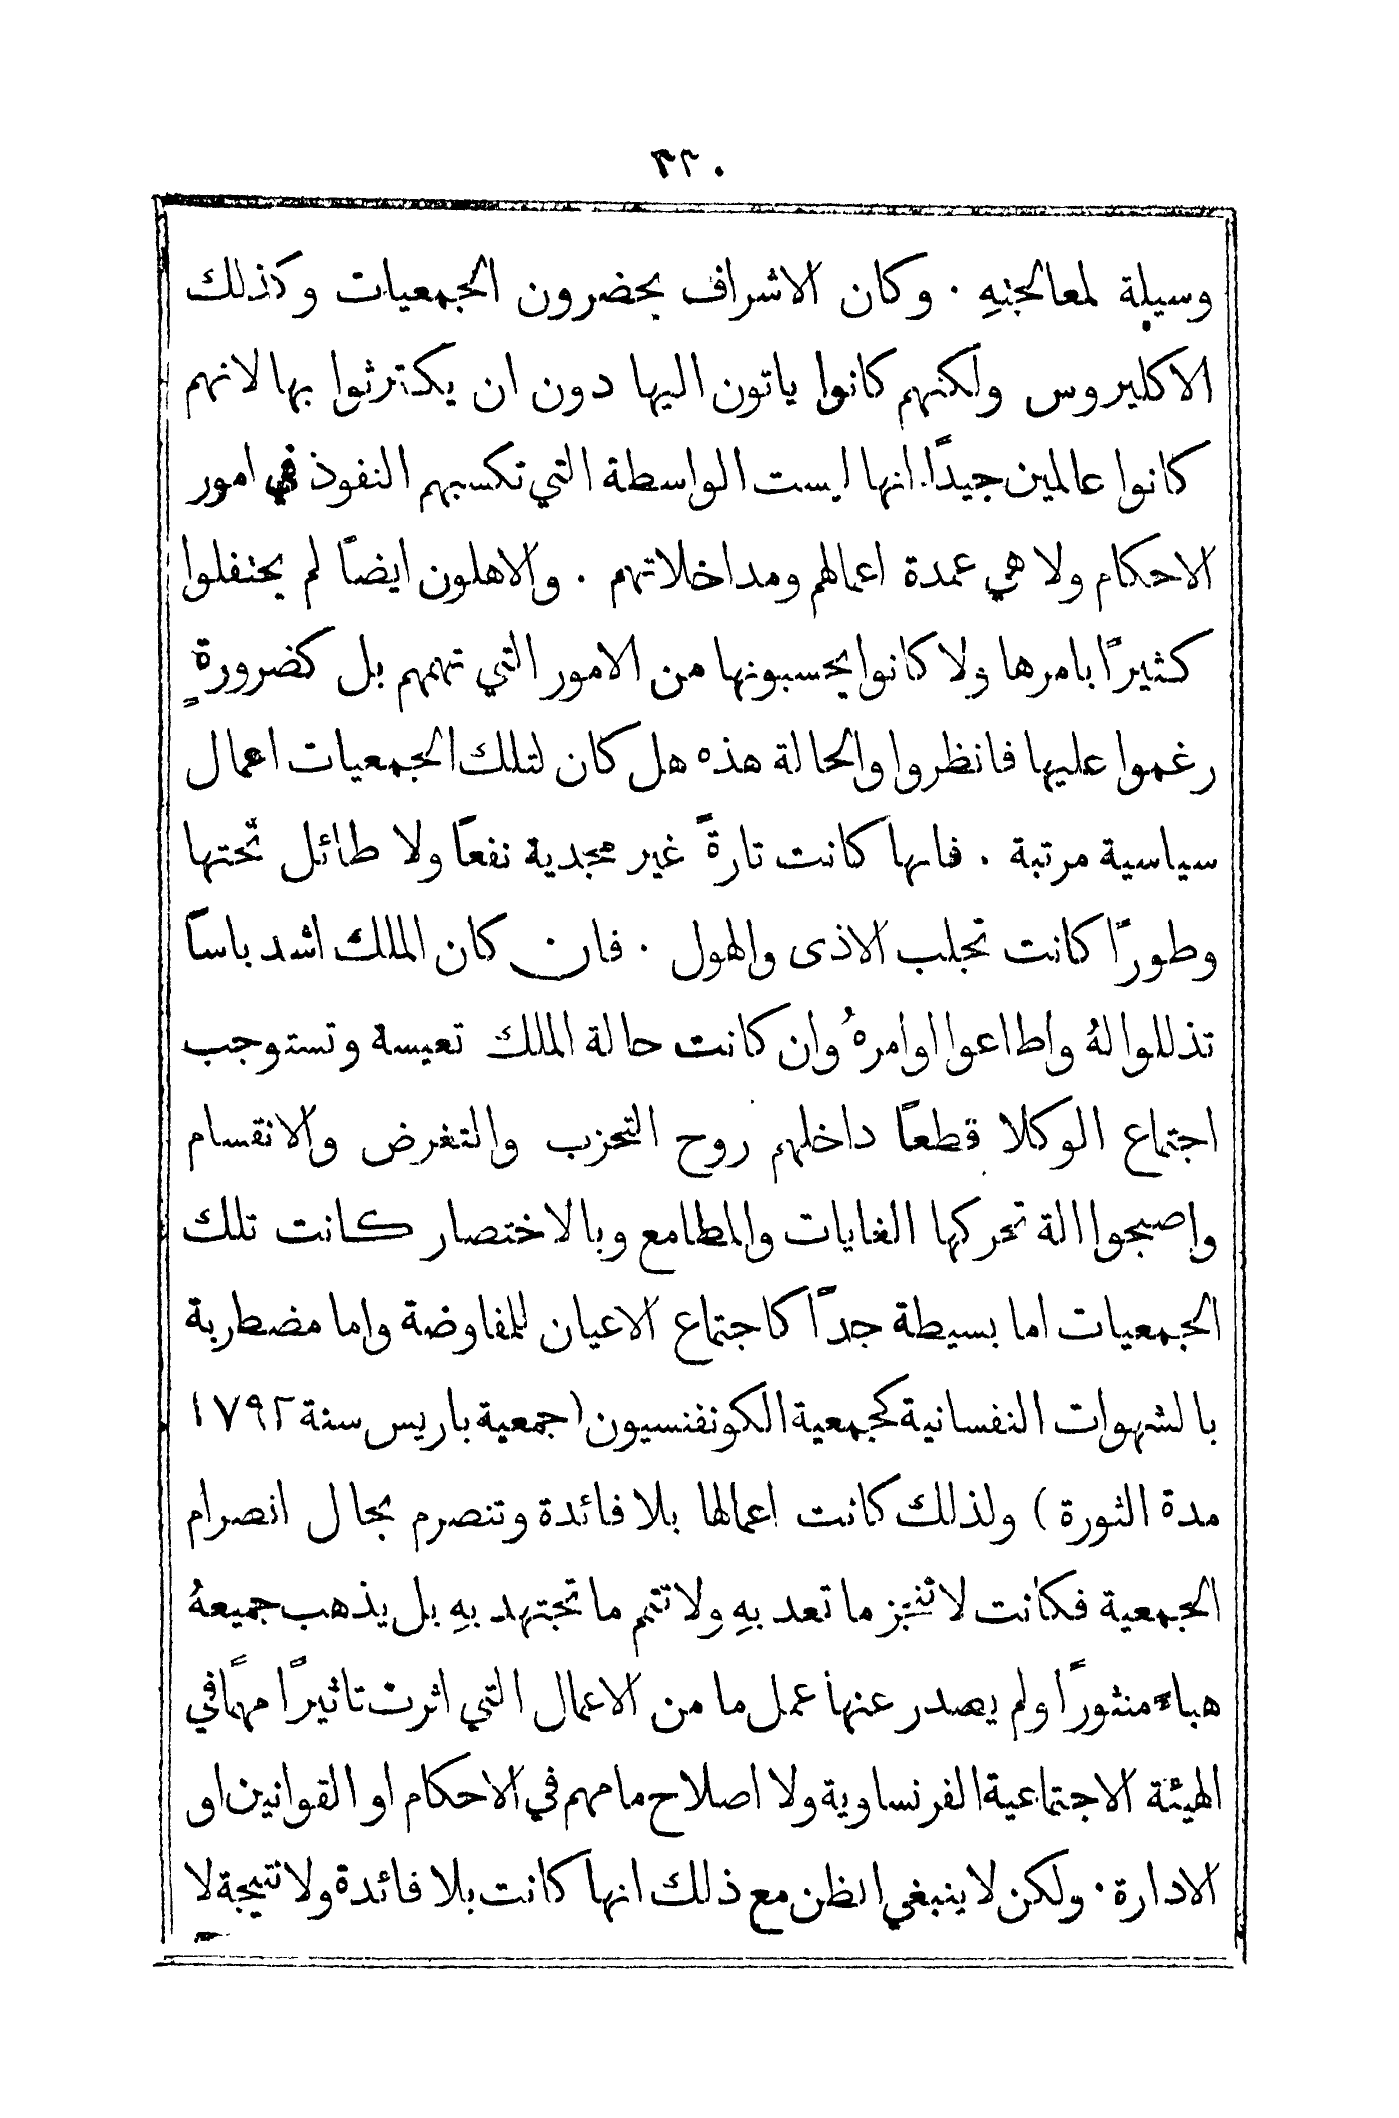 ٣٢٠
وسيلة لمعالجتهِ ٠ وكان الاشراف يحضرون الجمعيات وكذلك
الاكليروس ولكنهم كانوا ياتون اليها دون ان يكترثوا بها لانهم
كانوا عالمين جيدًا انها ليست الواسطة التي تكسبهم النفوذ في امور
الاحكام ولا هي عمدة اعمالهم ومداخلاتهم ٠ والاهلون ايضًا لم يحتفلوا
كثيرًا بامرها ولا كانوا يحسبونها من الامور التي تهمهم بل كضرورةٍ
رغموا عليها فانظروا والحالة هذه هل كان لتلك الجمعيات اعمال
سياسية مرتبة ٠ فانها كانت تارةً غير مجدية نفعًا ولا طائل تحتها
وطورًا كانت تجلب الاذى والهول ٠ فان كان الملك اشد باسًا
تذللوا لهُ واطاعوا اوامرهُ وان كانت حالة الملك تعيسة وتستوجب
اجتماع الوكلا قطعًا داخلهم روح التحزب والتغرض والانقسام
واصبحوا الة تحركها الغايات والمطامع وبالاختصار كانت تلك
الجمعيات اما بسيطة جدًا كاجتماع الاعيان للمفاوضة واما مضطربة
بالشهوات النفسانية كجمعية الكونفنسيون (جمعية باريس سنة ١٧٩٢
مدة الثورة) ولذلك كانت اعمالها بلا فائدة وتنصرم بحال انصرام
الجمعية فكانت لا تنجز ما تعد بهِ ولا تتم ما تجتهد بهِ بل يذهب جميعهُ
هباء منثورًا ولم يصدر عنها عمل ما من الاعمال التي اثرت تاثيرًا مهمًا في
الهيئة الاجتماعية الفرنساوية ولا اصلاح ما مهم في الاحكام او القوانين او
الادارة ٠ ولكن لا ينبغي الظن مع ذلك انها كانت بلا فائدة ولا نتيجة لا